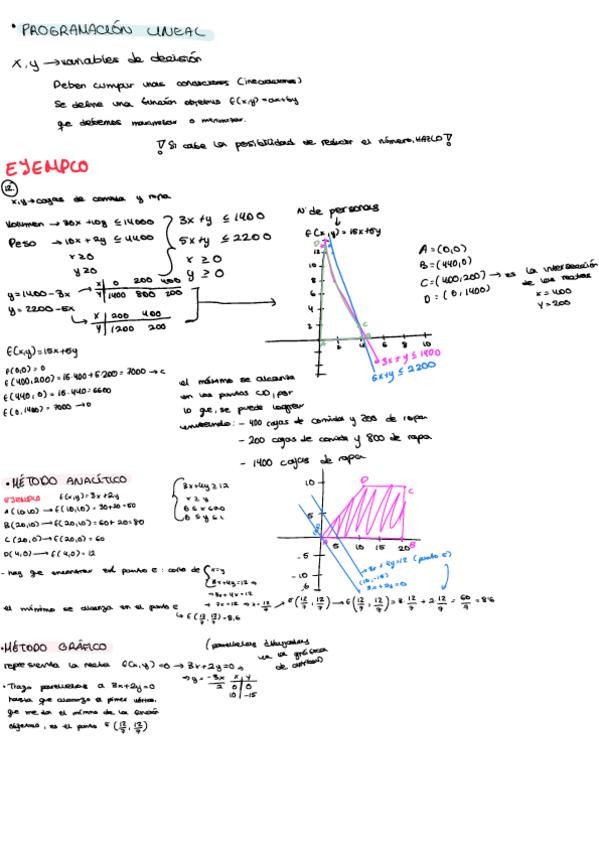 • PROGRAMACIÓN LINEAL
x, y → variables de decisión
Deben cumplir unas condiciones (inecuaciones)
Se define una función objetivo f(x,y) = ax+by
que debemos maximizar o minimizar.
! Si cabe la posibilidad de reducir el número, HAZLO !
EJEMPLO
12.
x,y → cajas de comida y ropa
Volumen → 30x + 10y ≤ 14000
Peso → 10x + 2y ≤ 4400
x ≥ 0
y ≥ 0
3x + y ≤ 1400
5x + y ≤ 2200
x ≥ 0
y ≥ 0
y = 1400 - 3x
x 0 200 400
y 1400 800 200
y = 2200 - 5x
x 200 400
y 1200 200
Nº de personas
f(x,y) = 15x+5y
12
10
8
6
4
2
2 4 6 8 10
C
3x + y ≤ 1400
5x + y ≤ 2200
A = (0,0)
B = (440,0)
C = (400,200) → es la intersección
de las rectas
x = 400
y = 200
D = (0,1400)
f(x,y) = 15x+5y
f(0,0) = 0
f(400,200) = 15·400 + 5·200 = 7000 → C
f(440,0) = 15·440 = 6600
f(0,1400) = 7000 → D
el máximo se alcanza
en los puntos CD, por
lo que, se puede lograr
enviando: - 400 cajas de comida y 200 de ropa
- 200 cajas de comida y 800 de ropa
- 1400 cajas de ropa
• MÉTODO ANALÍTICO
EJEMPLO f(x,y) = 3x + 2y
A(10,10) → f(10,10) = 30+20 = 50
B(20,10) → f(20,10) = 60+20 = 80
C(20,0) → f(20,0) = 60
D(4,0) → f(4,0) = 12
3x + 4y ≥ 12
x ≥ y
0 ≤ x ≤ 20
10
5
-5
-10
5 10 15 20
D
C
B
3x + 4y = 12 (punto E)
(10,-15)
3x + 2y = 0
- hay que encontrar el punto E: corte de
x = y
3x + 4y = 12 →
→ 3x + 4x = 12
→ 7x = 12 → x = 12/7 → E (12/7, 12/7) → f (12/7, 12/7) = 3·12/7 + 2·12/7 = 60/7 = 8'6
el mínimo se alcanza en el punto E
↳ f (12/7, 12/7) = 8,6
• MÉTODO GRÁFICO
(paralelas dibujadas
en la gráfica
de arriba)
representa la recta f(x,y) = 0 → 3x + 2y = 0 →
→ y = -3x/2
x y
0 0
10 -15
• Trazo paralelas a 3x + 2y = 0
hasta que alcanzo el primer vértice,
que me da el mínimo de la función
objetivo, es el punto E (12/7, 12/7)